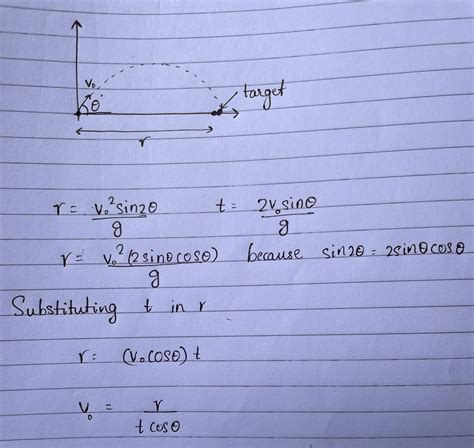 v₀
θ
target
r
r = v₀² sin2θ / g    t = 2v₀ sinθ / g
r = v₀² (2 sinθ cosθ) / g    because sin2θ = 2sinθcosθ
Substituting t in r
r = (v₀ cosθ) t
v₀ = r / t cosθ